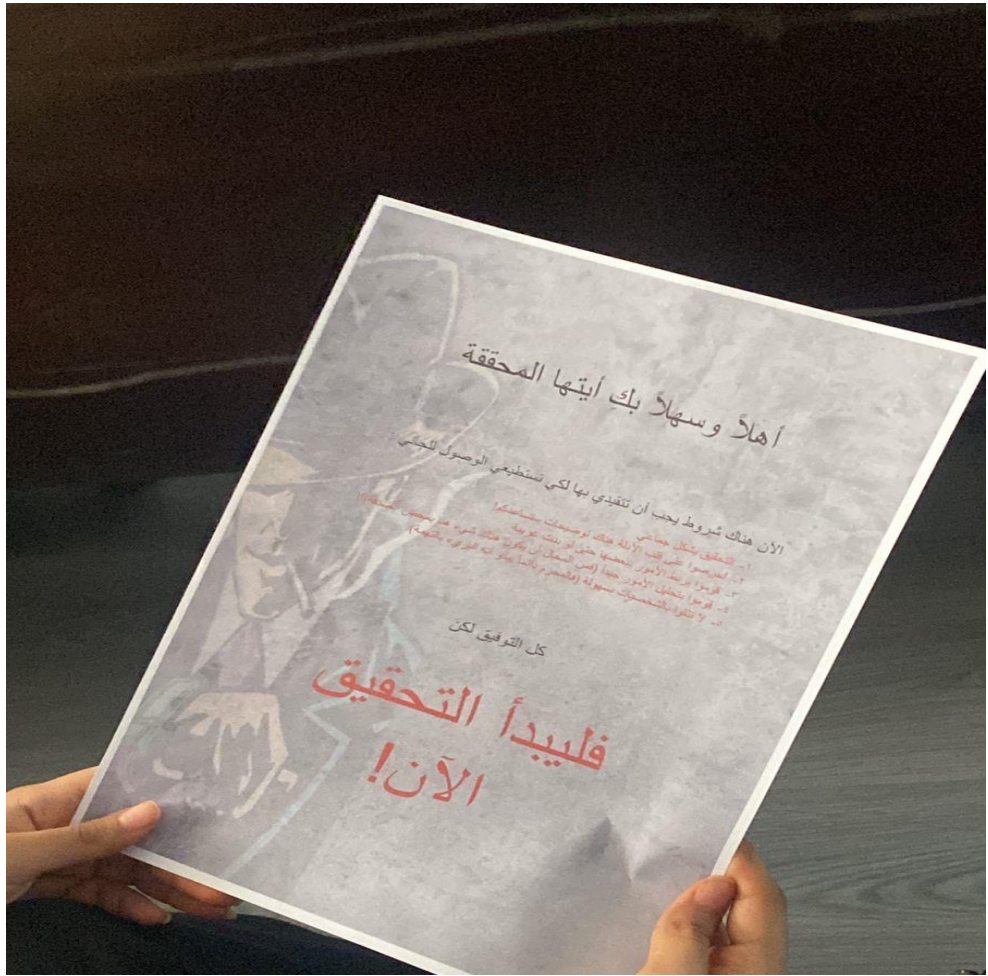 أهلاً وسهلاً بكِ أيتها المحققة
الآن هناك شروط يجب أن تتقيدي بها لكي تستطيعي الوصول للجاني :
١- التحقيق بشكل جماعي
٢- احرصوا على قلب الأدلة هناك توضيحات ستساعدكم!
٣- قوموا بربط الأمور ببعضها حتى لو بدت غريبة
٤- قوموا بتحليل الأمور جيداً (فمن المحال أن يكون هناك شيء هنا بمحض الصدفة)
٥- لا تثقوا بالشخصيات بسهولة (فالمجرم دائماً يبدو أنه البريء بالتهمة)
كل التوفيق لكن
فليبدأ التحقيق
الآن!